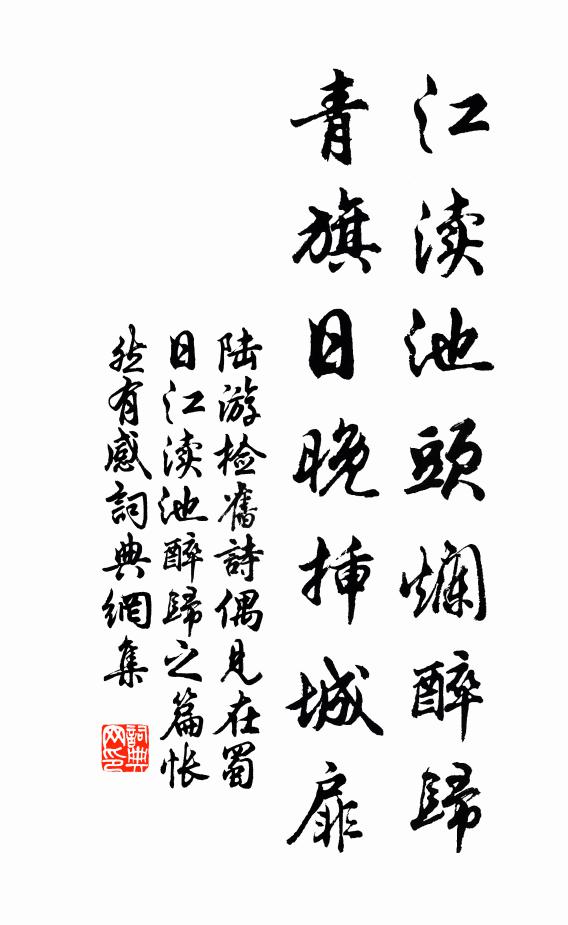 江渎池頭爛醉歸
青旗日晚插城扉
陆游检舊詩偶見在蜀
日江渎池醉歸之篇怅
然有感詞典網集
詞典网印